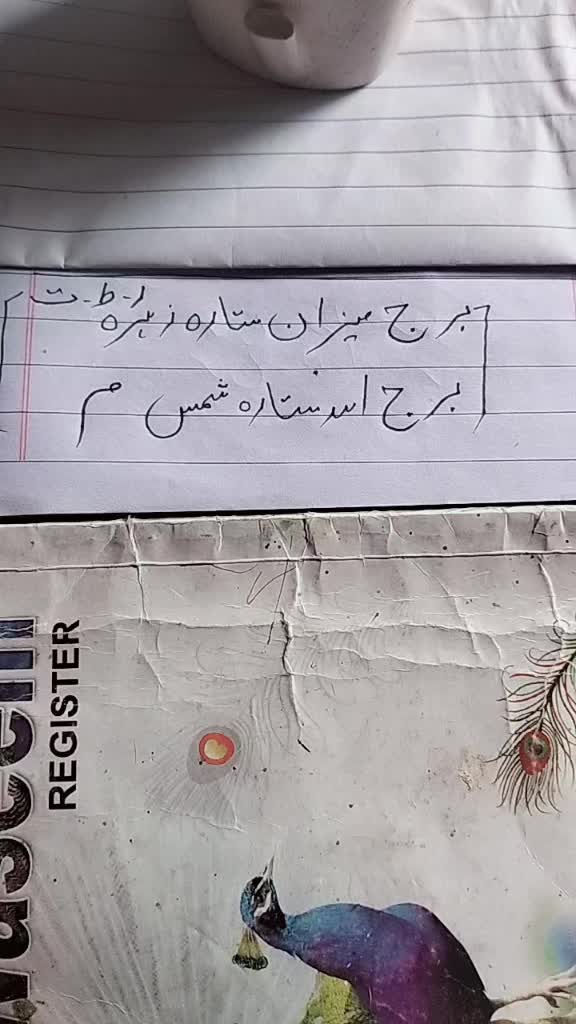 برج میزان ستارہ زہرہ ر-ط-ت
برج اسد ستارہ شمس م
REGISTER